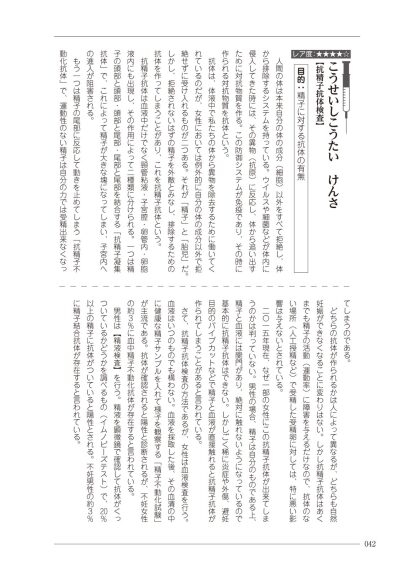 レア度：★★★★☆
こうせいしこうたい　けんさ
【抗精子抗体検査】
目的：精子に対する抗体の有無
人間の体は本来自分の体の成分（細胞）以外をすべて拒絶し、体
から排除するシステムを持っている。ウイルスや細菌などが体内に
侵入してきた時には、その異物（抗原）に反応し、体から追い出す
ために対抗物質を作る。この防御システムが免疫であり、その時に
作られる対抗物質を抗体という。
抗体は、体液中で私たちの体から異物を除去するために働いてく
れているのだが、女性においては例外的に自分の体の成分以外で拒
絶せずに受け入れるものが二つある。それが「精子」と「胎児」だ。
しかし、拒絶されないはずの精子を外敵とみなし、排除するための
抗体を作ってしまうことがあり、これを抗精子抗体という。
抗精子抗体は血液中だけでなく頸管粘液・子宮腔・卵管内・卵胞
液内にも出現し、その作用によって二種類に分けられる。一つは精
子の頭部と頭部・頭部と尾部・尾部と尾部を結合する「抗精子凝集
抗体」で、これによって精子が大きな塊になってしまい、子宮内へ
の進入が阻害される。
もう一つは精子の尾部に反応して動きを止めてしまう「抗精子不
動化抗体」で、運動性のない精子は自分の力では受精出来なくなっ
てしまうのである。
どちらの抗体が作られるかは人によって異なるが、どちらも自然
妊娠ができなくなることに変わりはない。しかし抗精子抗体はあく
までも精子の活動（運動率）に障害を与えるだけなので、抗体のな
い場所（人工授精など）で受精した受精卵に対しては、特に悪い影
響は与えないとされている。
二〇一五年現在、なぜ一部の女性にこの抗精子抗体が出来てしま
うのかは判っていない。男性の場合、精子は自分のものである上、
精子と血液には関門があり、絶対に触れないようになっているので
基本的に抗精子抗体はできない。しかしごく稀に炎症や外傷、避妊
目的のパイプカットなどで精子と血液が直接触れると抗精子抗体が
作られてしまうことがあると言われている。
さて、抗精子抗体検査の方法であるが、女性は血液検査を行う。
血液はいつのものでも構わない。血液を採取した後、その血清の中
に健康な精子サンプルを入れて様子を観察する「精子不動化試験」
が主流である。抗体が確認されると陽性と診断されるが、不妊女性
の約３％に血中精子不動化抗体が存在すると言われている。
男性は【精液検査】を行う。精液を顕微鏡で確認して抗体がくっ
ついているかどうかを調べるもの（イムノビーズテスト）で、20％
以上の精子に抗体がついていると陽性とされる。不妊男性の約３％
に精子結合抗体が存在すると言われている。
042